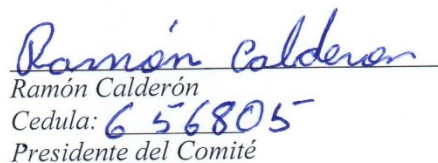 Ramón Calderon
Ramón Calderón
Cedula: 656805
Presidente del Comité